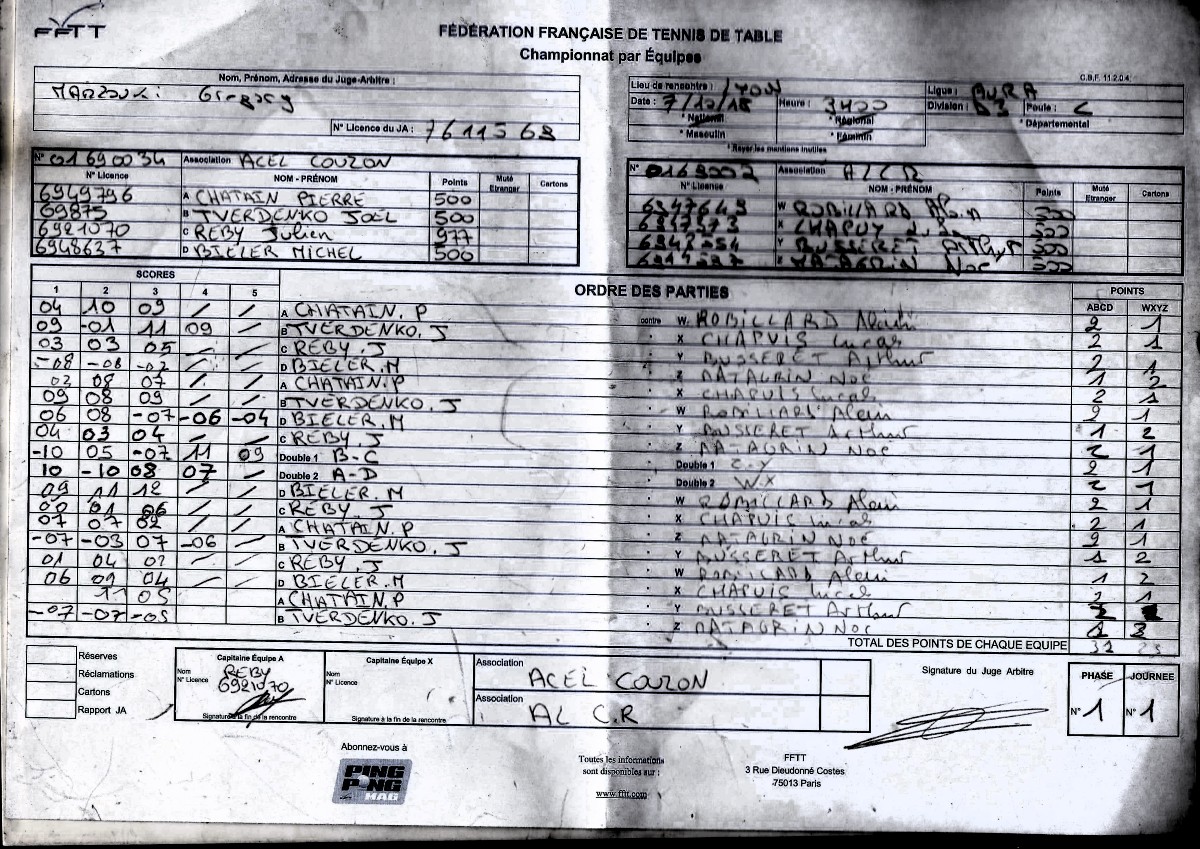 FFTT
FÉDÉRATION FRANÇAISE DE TENNIS DE TABLE
Championnat par Équipes
C.B.F. 11.2.04.
Nom, Prénom, Adresse du Juge-Arbitre :
N° Licence du JA : 7611568
Lieu de rencontre : LYON
Ligue : AURA
Date : 7/10/18 Heure : Division : D3 Poule : C
* National * Régional * Départemental
* Masculin * Féminin
* Rayer les mentions inutiles
N° 01690034 Association ACEL COUZON
N° Licence NOM - PRÉNOM Points Muté Etranger Cartons
6949796 A CHATAIN PIERRE 500
69875 B TVERDENKO JOËL 500
6921070 C REBY Julien 977
6948637 D BIELER MICHEL 500
N° Association ALCR
N° Licence NOM - PRÉNOM Points Muté Etranger Cartons
W ROBILLARD
X
Y BUSSERET Arthur
Z
SCORES ORDRE DES PARTIES POINTS
1 2 3 4 5 ABCD WXYZ
04 10 09 / / A CHATAIN. P contre W ROBILLARD Alain 2 1
09 -01 11 09 / B TVERDENKO. J X CHAPUIS Lucas 2 1
03 03 05 / / C REBY. J Y BUSSERET Arthur 2 1
-08 -08 -02 / / D BIELER. M Z 1 2
02 08 07 / / A CHATAIN. P X CHAPUIS Lucas 2 1
09 08 09 / / B TVERDENKO. J W ROBILLARD Alain 2 1
06 08 -07 -06 -04 D BIELER. M Y BUSSERET Arthur 1 2
04 03 04 / / C REBY. J Z 2 1
-10 05 -07 11 09 Double 1 B-C Double 1 Z.Y 2 1
10 -10 08 07 / Double 2 A-D Double 2 W.X 2 1
09 12 / / D BIELER. M W ROBILLARD Alain 2 1
01 06 / / C REBY. J X CHAPUIS Lucas 2 1
07 07 02 / / A CHATAIN. P Z 2 1
-07 -03 07 -06 / B TVERDENKO. J Y BUSSERET Arthur 1 2
01 04 02 / / C REBY. J W ROBILLARD Alain
06 09 04 / / D BIELER. M X CHAPUIS Lucas
11 05 A CHATAIN. P Y BUSSERET Arthur
-07 -07 B TVERDENKO. J Z
TOTAL DES POINTS DE CHAQUE EQUIPE
Réserves
Réclamations
Cartons
Rapport JA
Capitaine Équipe A
Nom REBY
N° Licence 6921070
Signature à la fin de la rencontre
Capitaine Équipe X
Nom
N° Licence
Signature à la fin de la rencontre
Association ACEL COUZON
Association AL C.R
Signature du Juge Arbitre
PHASE JOURNEE
N° 1 N° 1
Abonnez-vous à
PING PONG MAG
Toutes les informations
sont disponibles sur :
www.fftt.com
FFTT
3 Rue Dieudonné Costes
75013 Paris